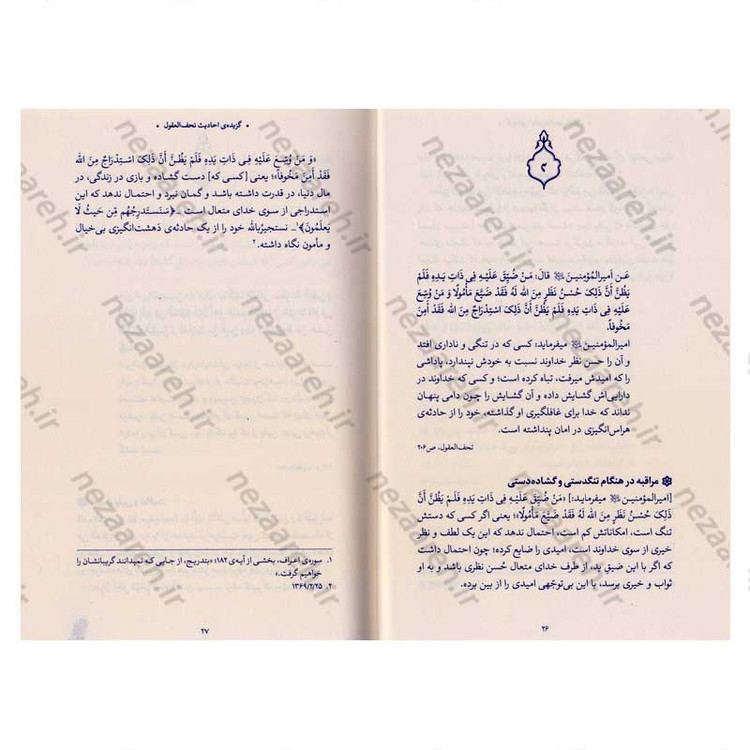 ۲
عَـن اَمیرِالمُؤمِنیـنَ قـالَ: مَـنْ ضُیِّقَ عَلَیـهِ فـی ذاتِ یَـدِهِ فَلَـمْ
یَظُنَّ أَنَّ ذٰلِکَ حُسْنُ نَظَرٍ مِنَ اللهِ لَهُ فَقَدْ ضَیَّعَ مَأْمُولًا وَ مَنْ وُسِّعَ
عَلَیْهِ فِی ذَاتِ یَدِهِ فَلَمْ یَظُنَّ أَنَّ ذَلِکَ اسْتِدْرَاجٌ مِنَ اللهِ فَقَدْ أَمِنَ
مَخُوفاً.
امیرالمؤمنین میفرماید: کسی که در تنگی و ناداری افتد
و آن را حسن نظر خداوند نسبت به خودش نپندارد، پاداشی
را که امیدش میرفت، تباه کرده است؛ و کسی که خداوند در
دارایی‌اش گشایش داده و آن گشایش را چون دامی پنهان
نداند که خدا برای غافلگیری او گذاشته، خود را از حادثه‌ی
هراس‌انگیزی در امان پنداشته است.
تحف‌العقول، ص۲۰۶
مراقبه در هنگام تنگدستی و گشاده‌دستی
[امیرالمؤمنین میفرماید:] «مَنْ ضُیِّقَ عَلَیْهِ فی ذاتِ یَدِهِ فَلَـمْ یَظُنَّ أَنَّ
ذٰلِکَ حُسْنُ نَظَرٍ مِنَ اللهِ لَهُ فَقَدْ ضَیَّعَ مَأْمُولًا»؛ یعنی اگر کسی که دستش
تنگ است، امکاناتش کم است، احتمال ندهد که این یک لطف و نظر
خیری از سوی خداوند است، امیدی را ضایع کرده؛ چون احتمال داشت
که اگر با این ضیق ید، از طرف خدای متعال حُسن نظری باشد و به او
ثواب و خیری برسد، با این بی‌توجّهی امیدی را از بین برده.
۲۶
• گزیده‌ی احادیث تحف‌العقول •
«وَ مَنْ وُسِّعَ عَلَیْهِ فِی ذَاتِ یَدِهِ فَلَمْ یَظُنَّ أَنَّ ذَلِکَ اسْتِدْرَاجٌ مِنَ اللهِ
فَقَدْ أَمِنَ مَخُوفاً»؛ یعنی [کسی که] دست گشاده و بازی در زندگی، در
مال دنیا، در قدرت داشته باشد و گمان نبرد و احتمال ندهد که این
استدراجی از سوی خدای متعال است ـ﴿سَنَستَدرِجُهُم مِن حَیثُ لا
یَعلَمُونَ﴾۱ـ نستجیربالله خود را از یک حادثه‌ی دَهشت‌انگیزی بی‌خیال
و مأمون نگاه داشته.۲
۱. سوره‌ی اعراف، بخشی از آیه‌ی ۱۸۲؛ «بتدریج، از جایی که نمیدانند گریبانشان را
خواهیم گرفت.»
۲. ۱۳۶۹/۲/۲۵
۲۷
nezaareh.ir
nezaareh.ir
nezaareh.ir
nezaareh.ir
nezaareh.ir
nezaareh.ir